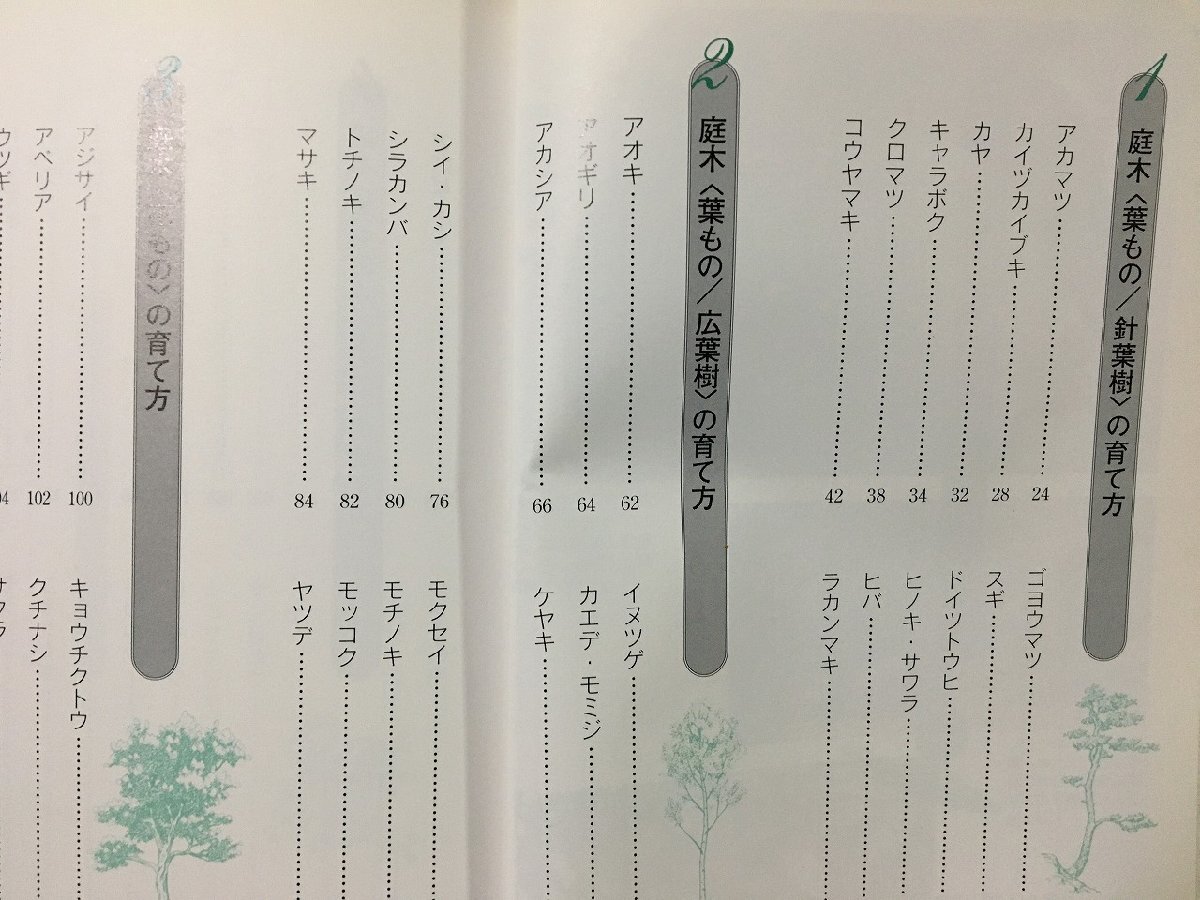 1
庭木〈葉もの／針葉樹〉の育て方
アカマツ 24
カイヅカイブキ 28
カヤ 32
キャラボク 34
クロマツ 38
コウヤマキ 42
ゴヨウマツ
スギ
ドイツトウヒ
ヒノキ・サワラ
ヒバ
ラカンマキ
2
庭木〈葉もの／広葉樹〉の育て方
アオキ 62
アオギリ 64
アカシア 66
イヌツゲ
カエデ・モミジ
ケヤキ
シイ・カシ 76
シラカンバ 80
トチノキ 82
マサキ 84
モクセイ
モチノキ
モッコク
ヤツデ
3
もの〉の育て方
アジサイ 100
アベリア 102
ウツギ
キョウチクトウ
クチナシ